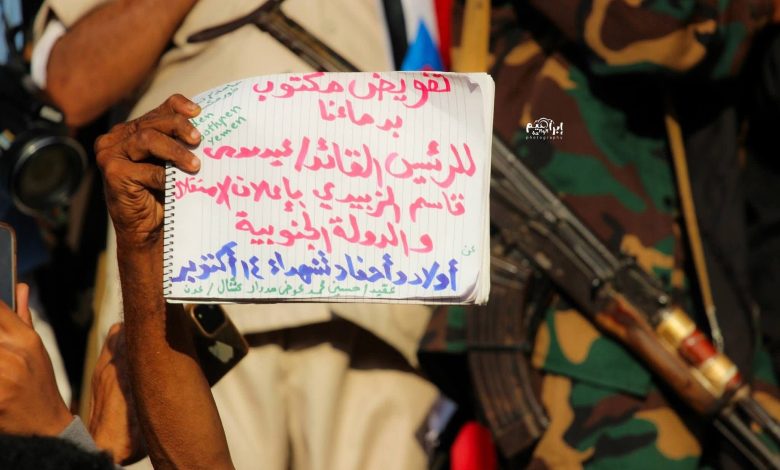 تفويض مكتوب
بدمائنا
للرئيس القائد/عيدروس
قاسم الزبيدي بإعلان الاستقلال
والدولة الجنوبية
عن
أولاد وأحفاد شهداء ١٤ أكتوبر
عقيد/حسين محمد عوض عشال/عدن
yemen
إبراهيم
photography